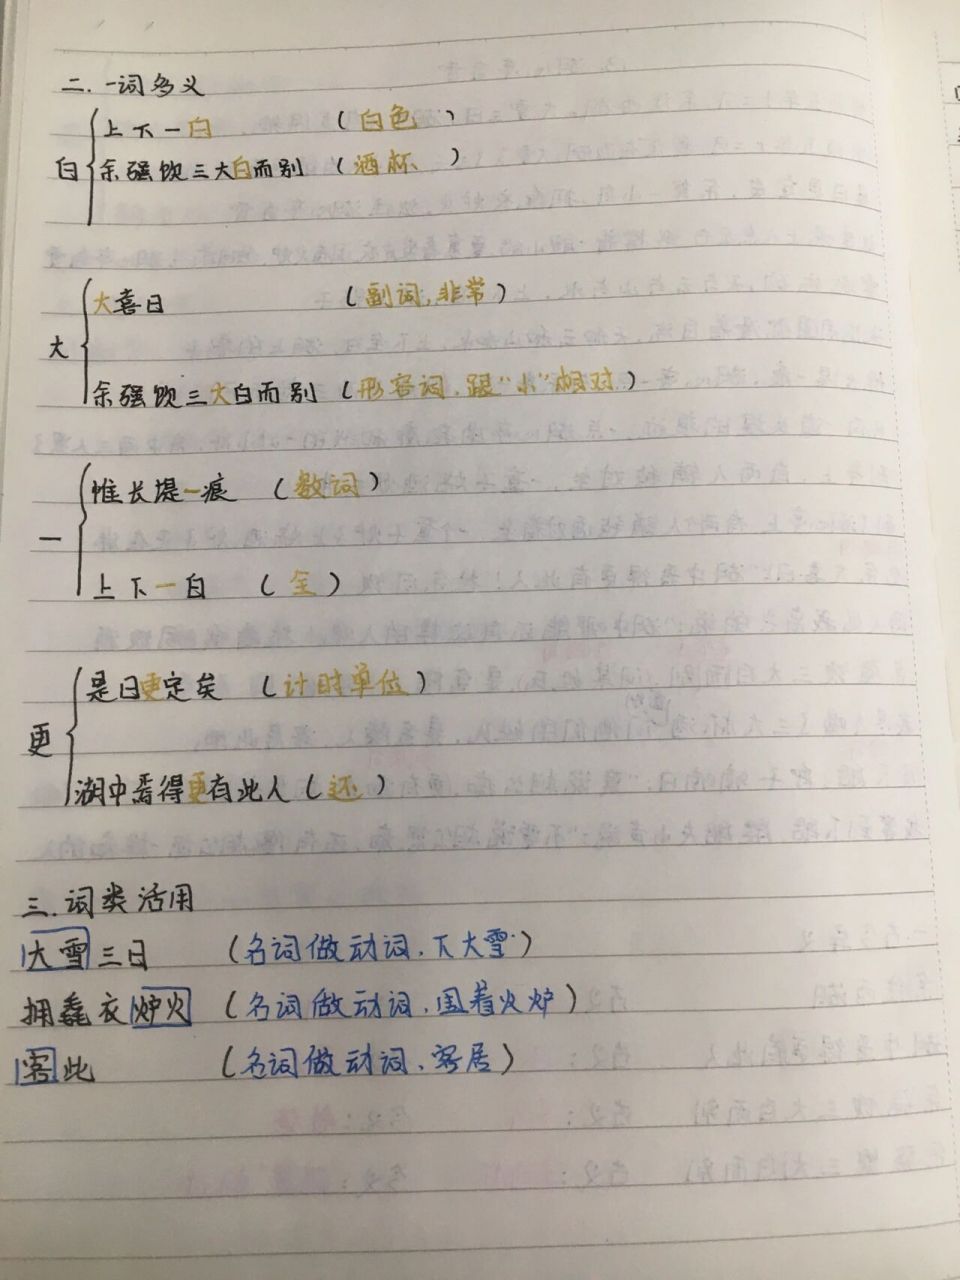 二.一词多义
上下一白 (白色)
白
余强饮三大白而别 (酒杯)
大喜日 (副词,非常)
大
余强饮三大白而别 (形容词,跟"小"相对)
惟长堤一痕 (数词)
一
上下一白 (全)
是日更定矣 (计时单位)
更
湖中焉得更有此人 (还)
三.词类活用
大雪三日 (名词做动词,下大雪)
拥毳衣炉火 (名词做动词,围着火炉)
客此 (名词做动词,客居)